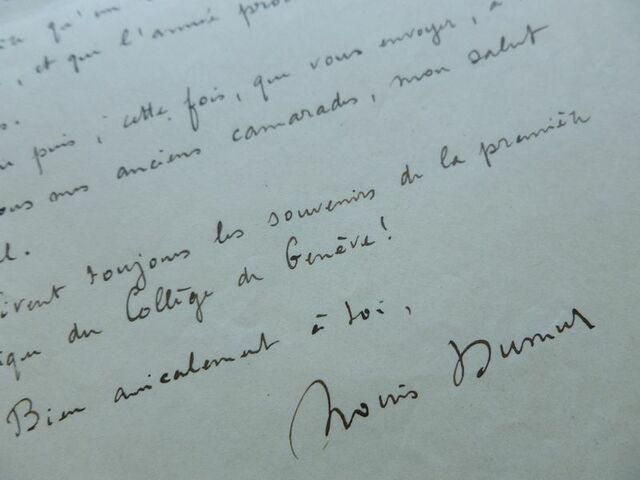 qu'un
, et que l'année pro
s.
puis, cette fois, que vous envoyer, à
ous mes anciens camarades, mon salut
l.
ivent toujours les souvenirs de la première
ique du Collège de Genève!
Bien amicalement à toi,
Louis Dumur